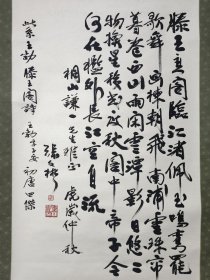 滕王高阁临江渚佩玉鸣鸾罢
歌舞画栋朝飞南浦云珠帘
暮卷西山雨闲云潭影日悠悠
物换星移几度秋阁中帝子今
何在槛外长江空自流
桐山谦一先生雅正
虎岁仲秋
此系王勃滕王阁诗
王勃字子安
初唐四杰